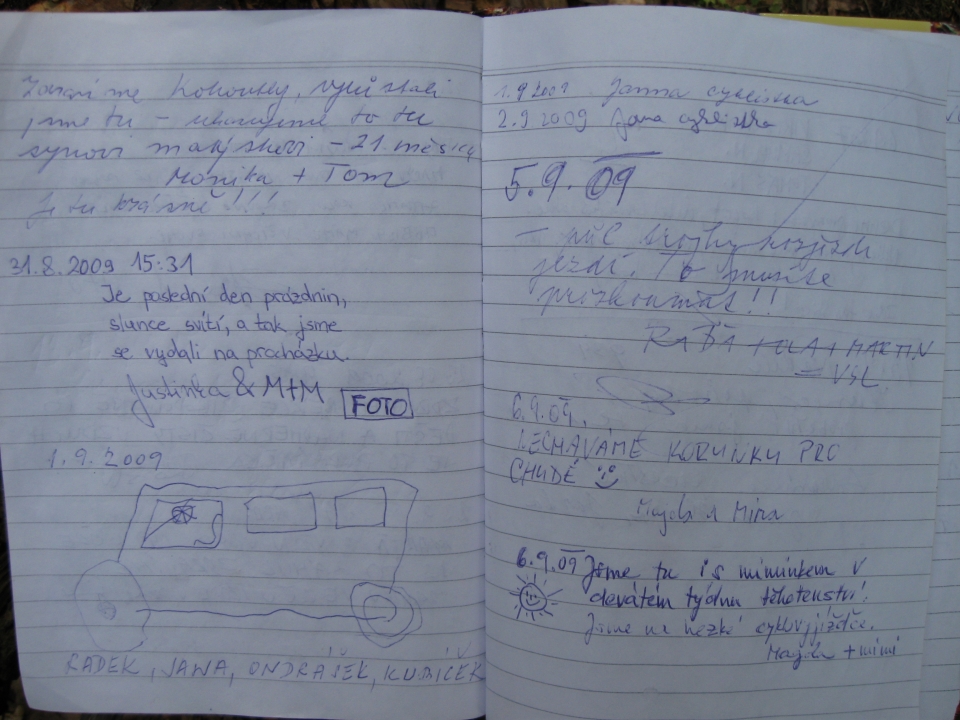 Zdraví me Lohovsky, vyrůstali
jsme tu - ukazujeme to tu
synovi malýškovi - 21 měsíců
Monika + Tom
Je tu krásně!!!
31.8.2009 15:31
Je poslední den prázdnin,
slunce svítí, a tak jsme
se vydali na procházku.
Justinka & M+M FOTO
1.9.2009
RADEK, JANA, ONDRÁŠEK, KUBÍČEK
1.9 2009 Janna cyklistka
2.9 2009 Jana cyklistka
5.9.09
- půl
jezdí. To musíte
prozkoumat!!
+ OLA + MARTIN
= VSL.
6.9.09.
NECHÁVÁME KORUNKU PRO
CHUDÉ
Majda a Míra
6.9.09 Jsme tu i s miminkem v
devátém týdnu těhotenství!
Jsme na hezké cyklovyjížďce.
+ mimi